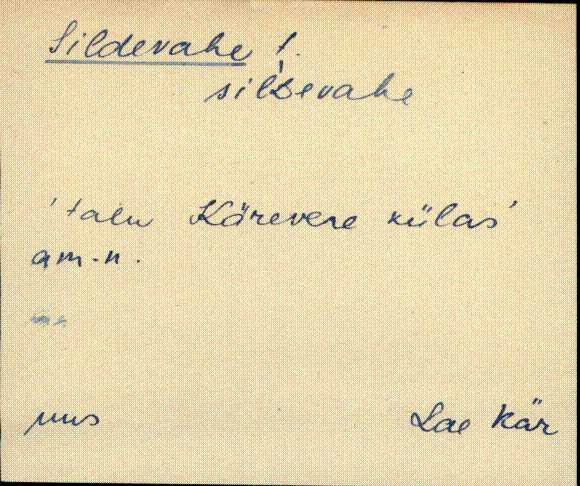 Sildevahe t.
silDevahe
'talu Kärevere külas'
am.n.
uus Lae Kär